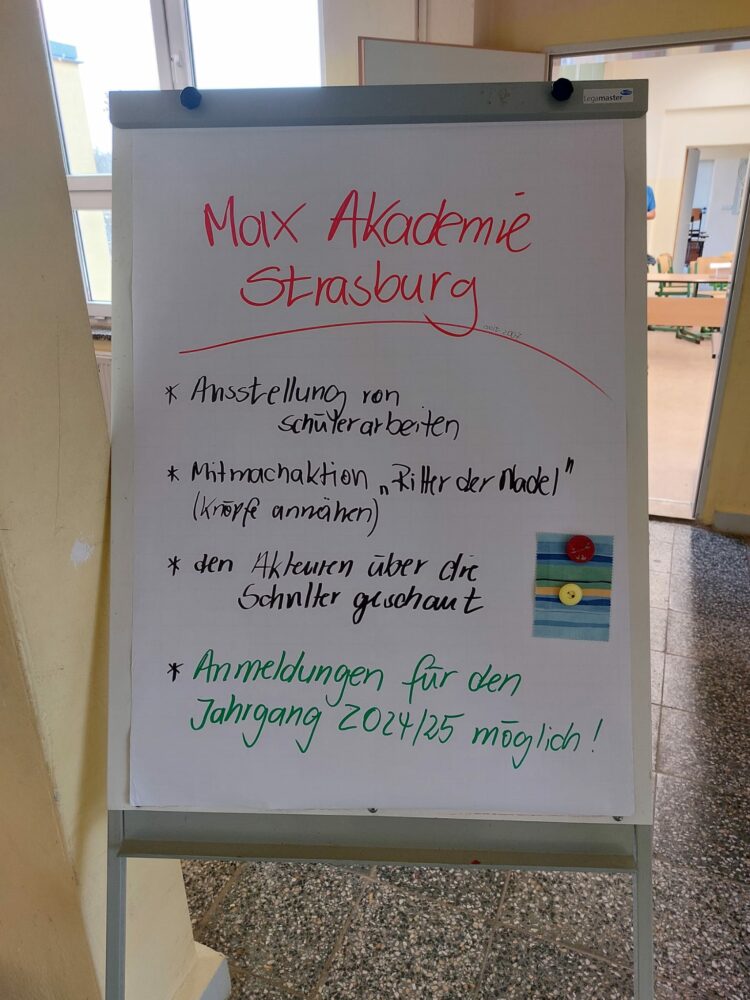 Legamaster
Max Akademie
Strasburg
* Ausstellung von
Schülerarbeiten
* Mitmachaktion „Ritter der Nadel"
(Knöpfe annähen)
* den Akteuren über die
Schulter geschaut
* Anmeldungen für den
Jahrgang 2024/25 möglich!